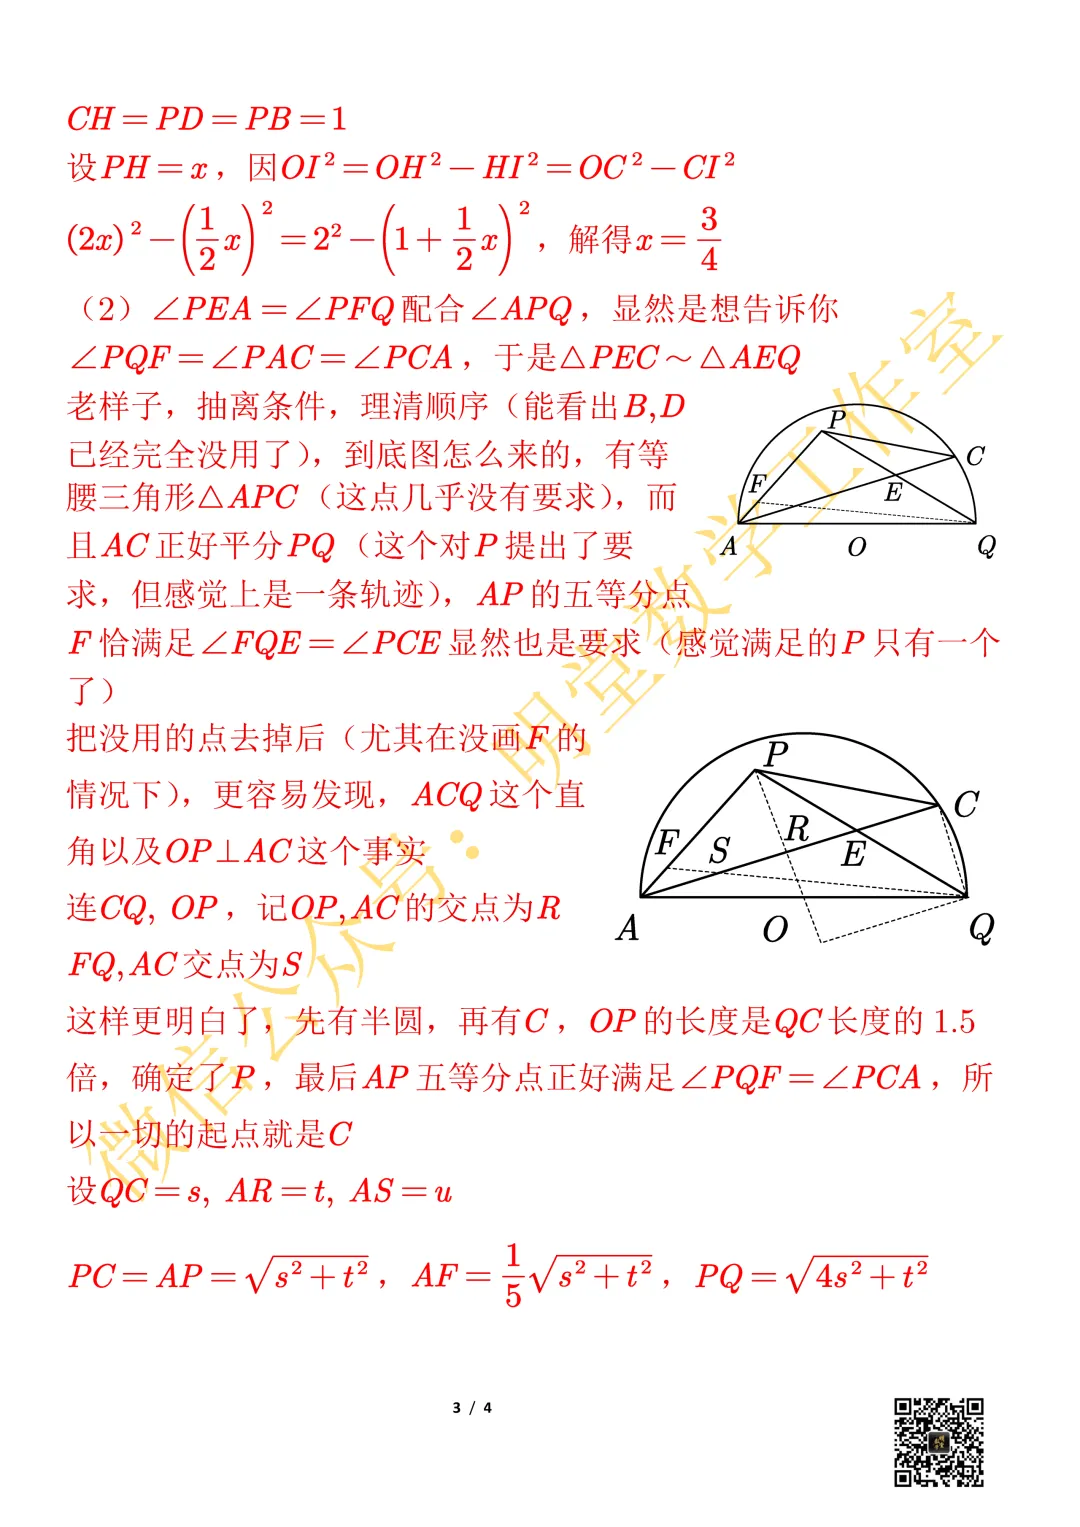 CH=PD=PB=1
设PH=x，因OI²=OH²-HI²=OC²-CI²
(2x)²-(1/2 x)²=2²-(1+1/2 x)²，解得x=3/4
（2）∠PEA=∠PFQ配合∠APQ，显然是想告诉你
∠PQF=∠PAC=∠PCA，于是△PEC～△AEQ
老样子，抽离条件，理清顺序（能看出B,D
已经完全没用了），到底图怎么来的，有等
腰三角形△APC（这点几乎没有要求），而
且AC正好平分PQ（这个对P提出了要
求，但感觉上是一条轨迹），AP的五等分点
F恰满足∠FQE=∠PCE显然也是要求（感觉满足的P只有一个
了）
P
C
F
E
A
O
Q
把没用的点去掉后（尤其在没画F的
情况下），更容易发现，ACQ这个直
角以及OP⊥AC这个事实
连CQ, OP，记OP,AC的交点为R
FQ,AC交点为S
P
C
F
S
R
E
A
O
Q
这样更明白了，先有半圆，再有C，OP的长度是QC长度的1.5
倍，确定了P，最后AP五等分点正好满足∠PQF=∠PCA，所
以一切的起点就是C
设QC=s, AR=t, AS=u
PC=AP=√(s²+t²)，AF=1/5√(s²+t²)，PQ=√(4s²+t²)
微信公众号：明堂数学工作室
3 / 4